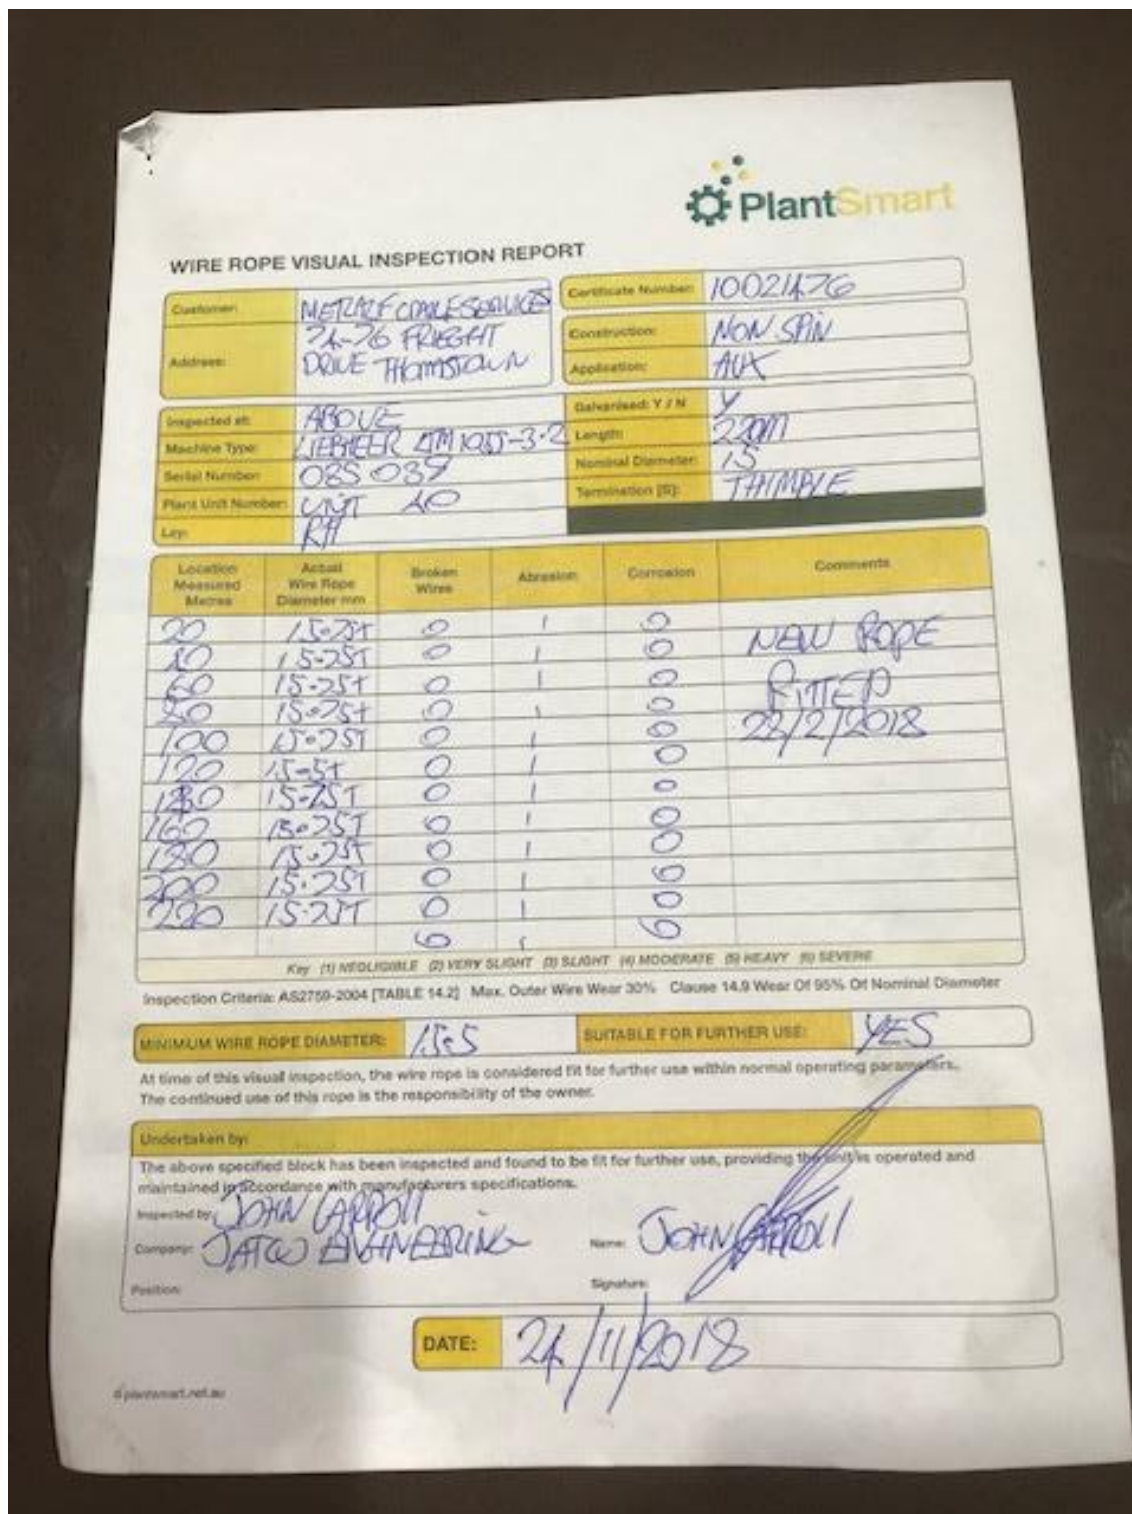 PlantSmart
WIRE ROPE VISUAL INSPECTION REPORT
Customer: METCALF CRANE SERVICES
Address: 74-76 FRIEGHT
DRIVE THOMSTOWN
Certificate Number: 10021476
Construction: NON SPIN
Application: AUX
Inspected at: ABOVE
Machine Type: LIEBHEER LTM 1055-3-2
Serial Number: 035 039
Plant Unit Number: UNIT 40
Lay: RH
Galvanised: Y / N Y
Length: 220M
Nominal Diameter: 15
Termination [S]: THIMBLE
Location Measured Metres Actual Wire Rope Diameter mm Broken Wires Abrasion Corrosion Comments
20 15.75T 0 1 0 NEW ROPE
40 15.25T 0 1 0
60 15.25T 0 1 0 FITTED
80 15.75T 0 1 0 28/2/2018
100 15.75T 0 1 0
120 15.5T 0 1 0
140 15.75T 0 1 0
160 15.25T 0 1 0
180 15.25T 0 1 0
200 15.25T 0 1 0
220 15.25T 0 1 0
0 1 0
Key (1) NEGLIGIBLE (2) VERY SLIGHT (3) SLIGHT (4) MODERATE (5) HEAVY (6) SEVERE
Inspection Criteria: AS2759-2004 [TABLE 14.2] Max. Outer Wire Wear 30% Clause 14.9 Wear Of 95% Of Nominal Diameter
MINIMUM WIRE ROPE DIAMETER: 15.5 SUITABLE FOR FURTHER USE: YES
At time of this visual inspection, the wire rope is considered fit for further use within normal operating parameters.
The continued use of this rope is the responsibility of the owner.
Undertaken by:
The above specified block has been inspected and found to be fit for further use, providing the unit is operated and
maintained in accordance with manufacturers specifications.
Inspected by: JOHN CARROLL
Company: JATCO ENGINEERING Name: JOHN CARROLL
Position: Signature:
DATE: 24/11/2018
plantsmart.net.au